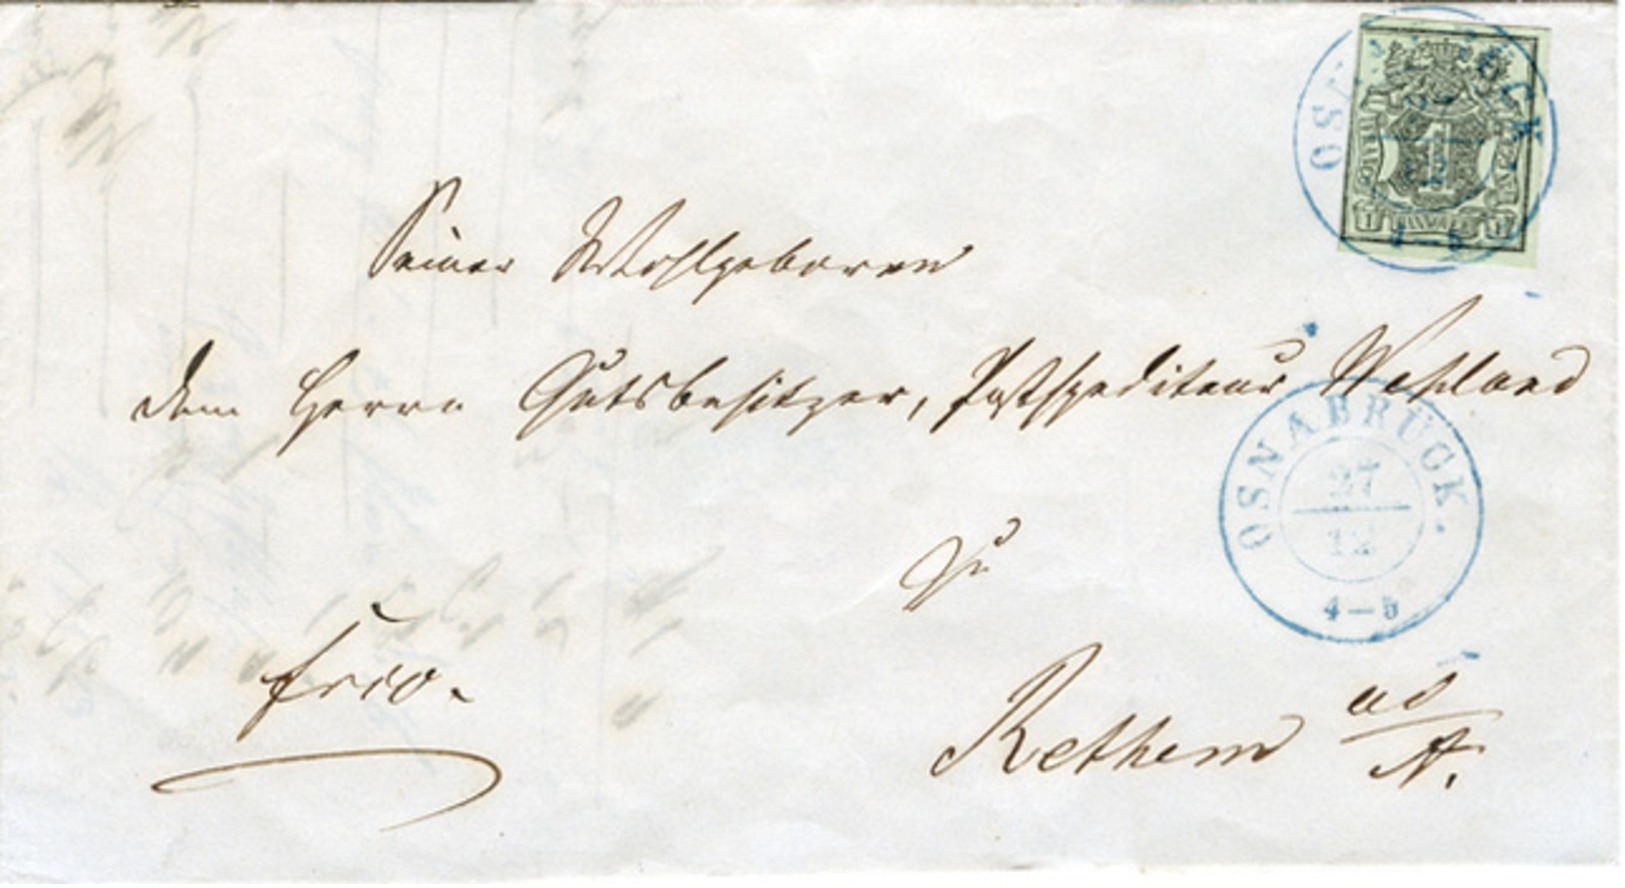 OSNABRÜCK
1
4—5
Seiner Wohlgeboren
dem Herrn Gutsbesitzer, Postspediteur
OSNABRÜCK.
27
12
4—5
zu
frco.
Rethem a/d
A.